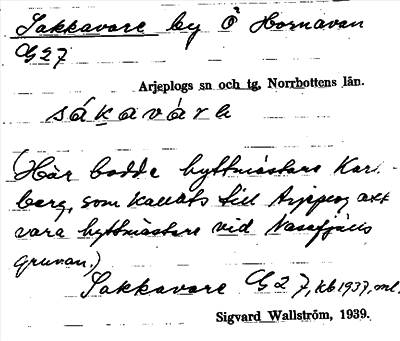 Sakkavare by Ö Hornavan
G27
Arjeplogs sn och tg, Norrbottens län.
sákavárh
(Här bodde hyttmästare Karl-
berg, som kallats till Arjeplog att
vara hyttmästare vid Nasafjälls
gruvan.)
Sakkavare G27, kb 1937, ml.
Sigvard Wallström, 1939.